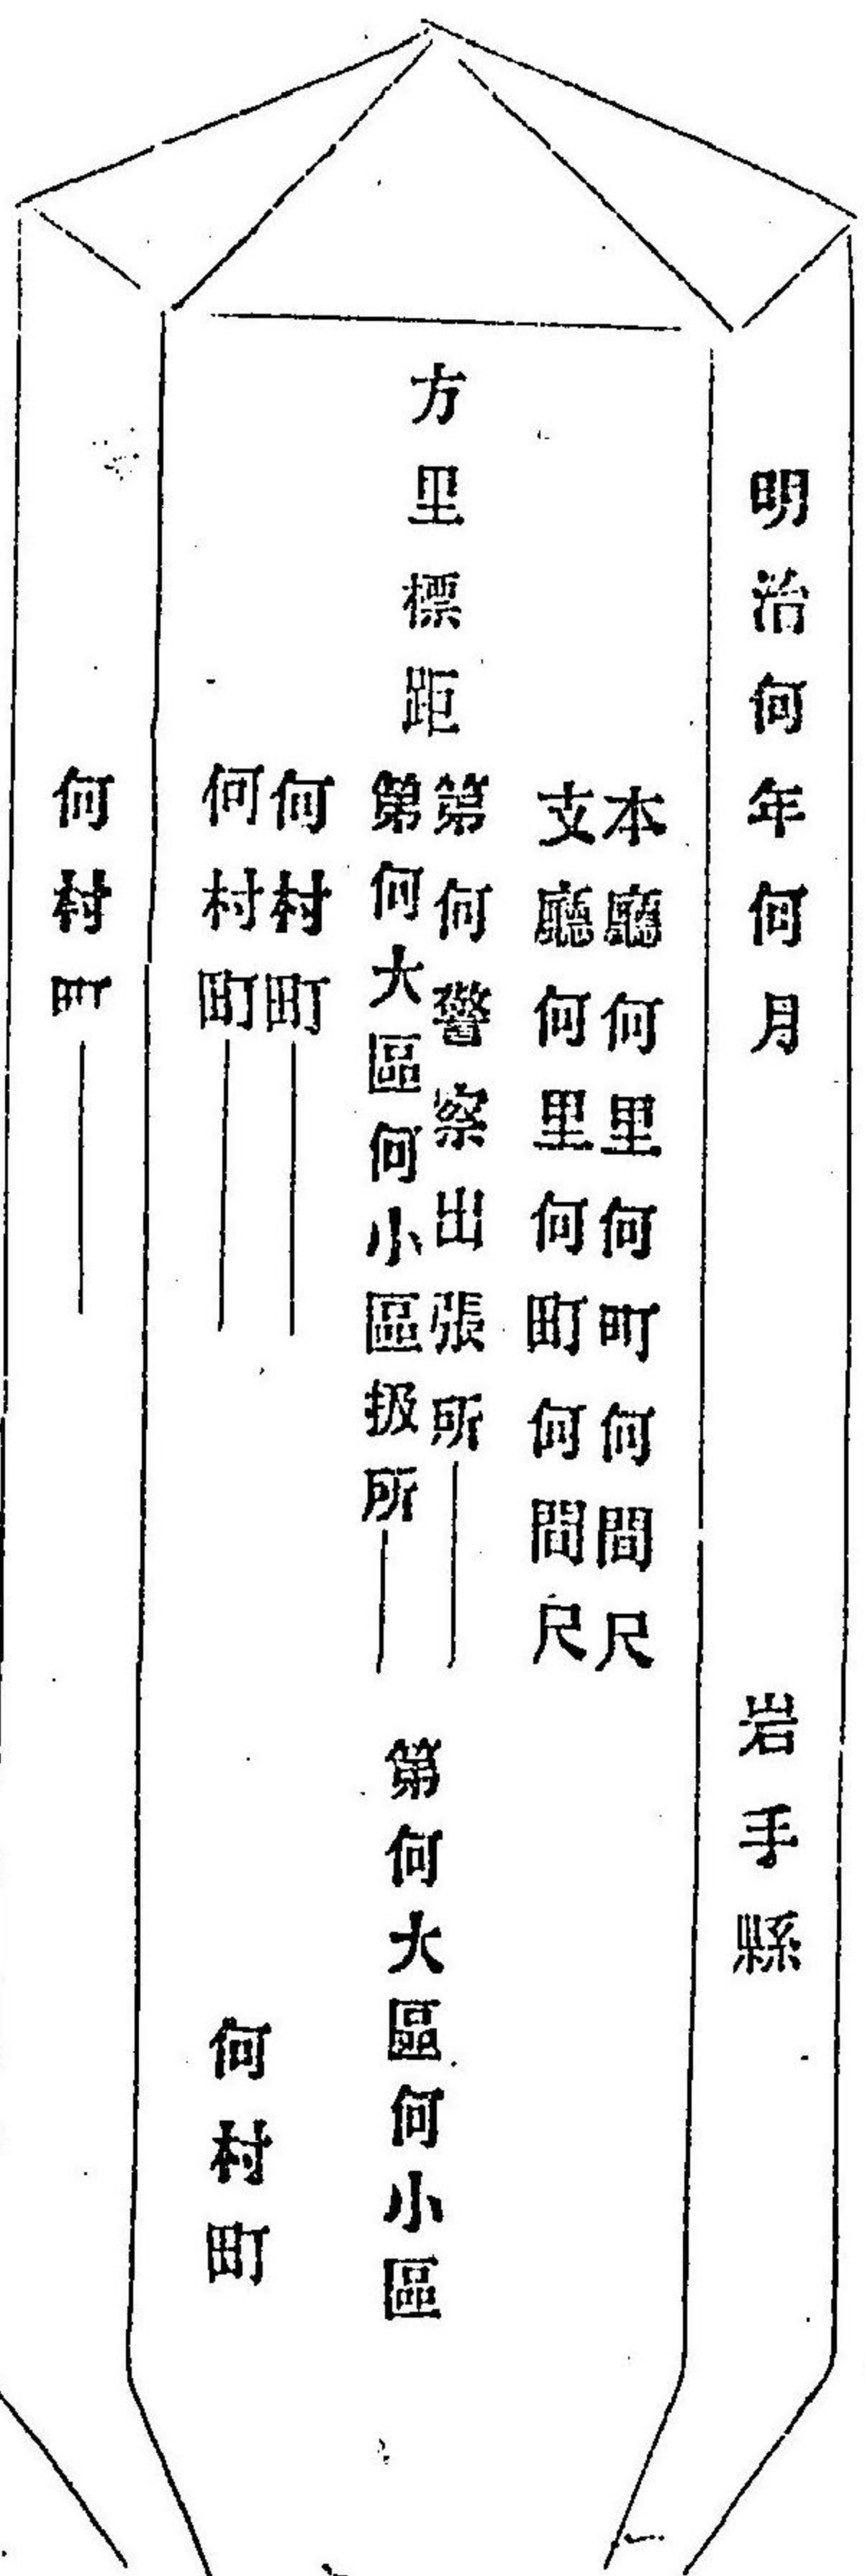 明治何年何月
岩手縣
方里標
距
本廳何里何町何間尺
支廳何里何町何間尺
第何警察出張所
第何大區何小區扱所
何村町
何村町
第何大區何小區
何村町
何村町